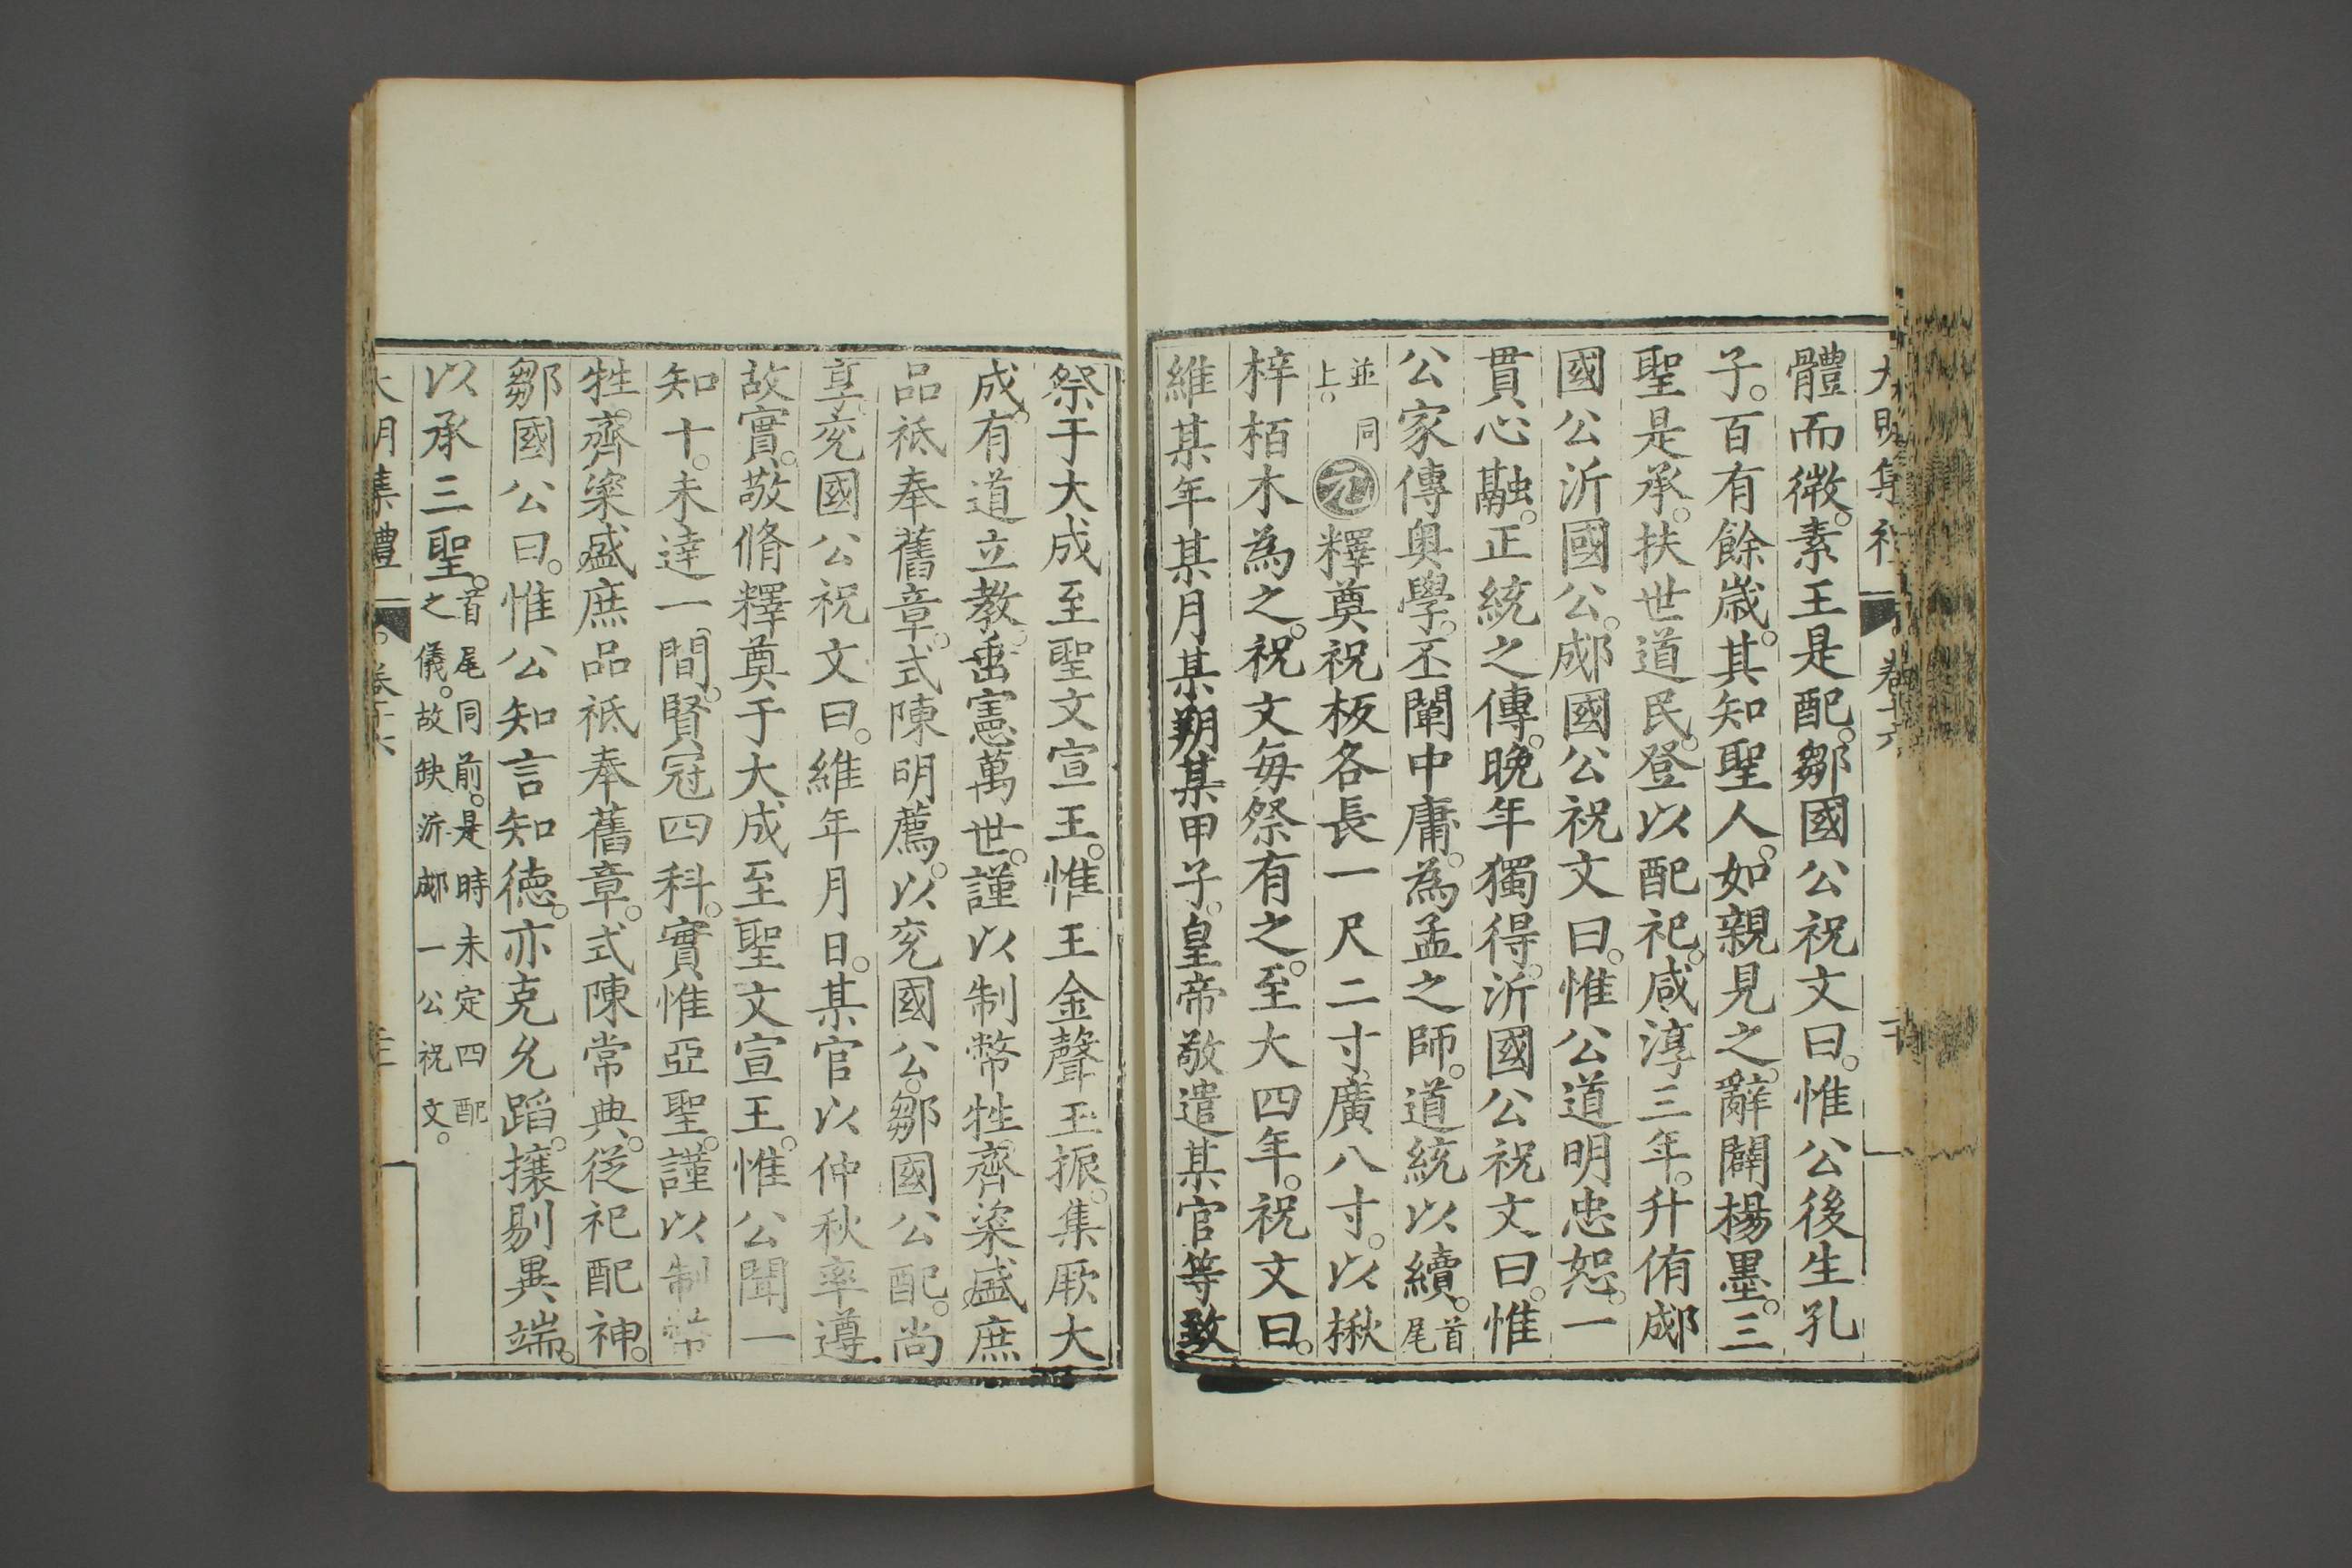 體而微。素王是配。鄒國公祝文曰。惟公後生孔
子。百有餘歲。其知聖人。如親見之。辭闢楊墨。三
聖是承。扶世道民。登以配祀。咸淳三年。升侑郕
國公沂國公。郕國公祝文曰。惟公道明忠恕。一
貫心融。正統之傳。晚年獨得。沂國公祝文曰。惟
公家傳奥學。丕闡中庸。為孟之師。道統以續。首尾
並同上。元釋奠祝板各長一尺二寸。廣八寸。以楸
梓栢木為之。祝文每祭有之。至大四年。祝文曰。
維某年某月某朔某甲子。皇帝敬遣某官等致
祭于大成至聖文宣王。惟王金聲玉振。集厥大
成。有道立教。垂憲萬世。謹以制幣牲齊粢盛庶
品祇奉舊章。式陳明薦。以兖國公。鄒國公配。尚
享。兖國公祝文曰。維年月日。某官以仲秋率遵
故實。敬脩釋奠于大成至聖文宣王。惟公聞一
知十。未達一間。賢冠四科。實惟亞聖。謹以制幣
牲齊粢盛庶品祇奉舊章。式陳常典。從祀配神。
鄒國公曰。惟公知言知德。亦克允蹈。攘剔異端。
以承三聖。首尾同前。是時未定四配
之儀。故缺沂郕一公祝文。
大明集禮 卷十六